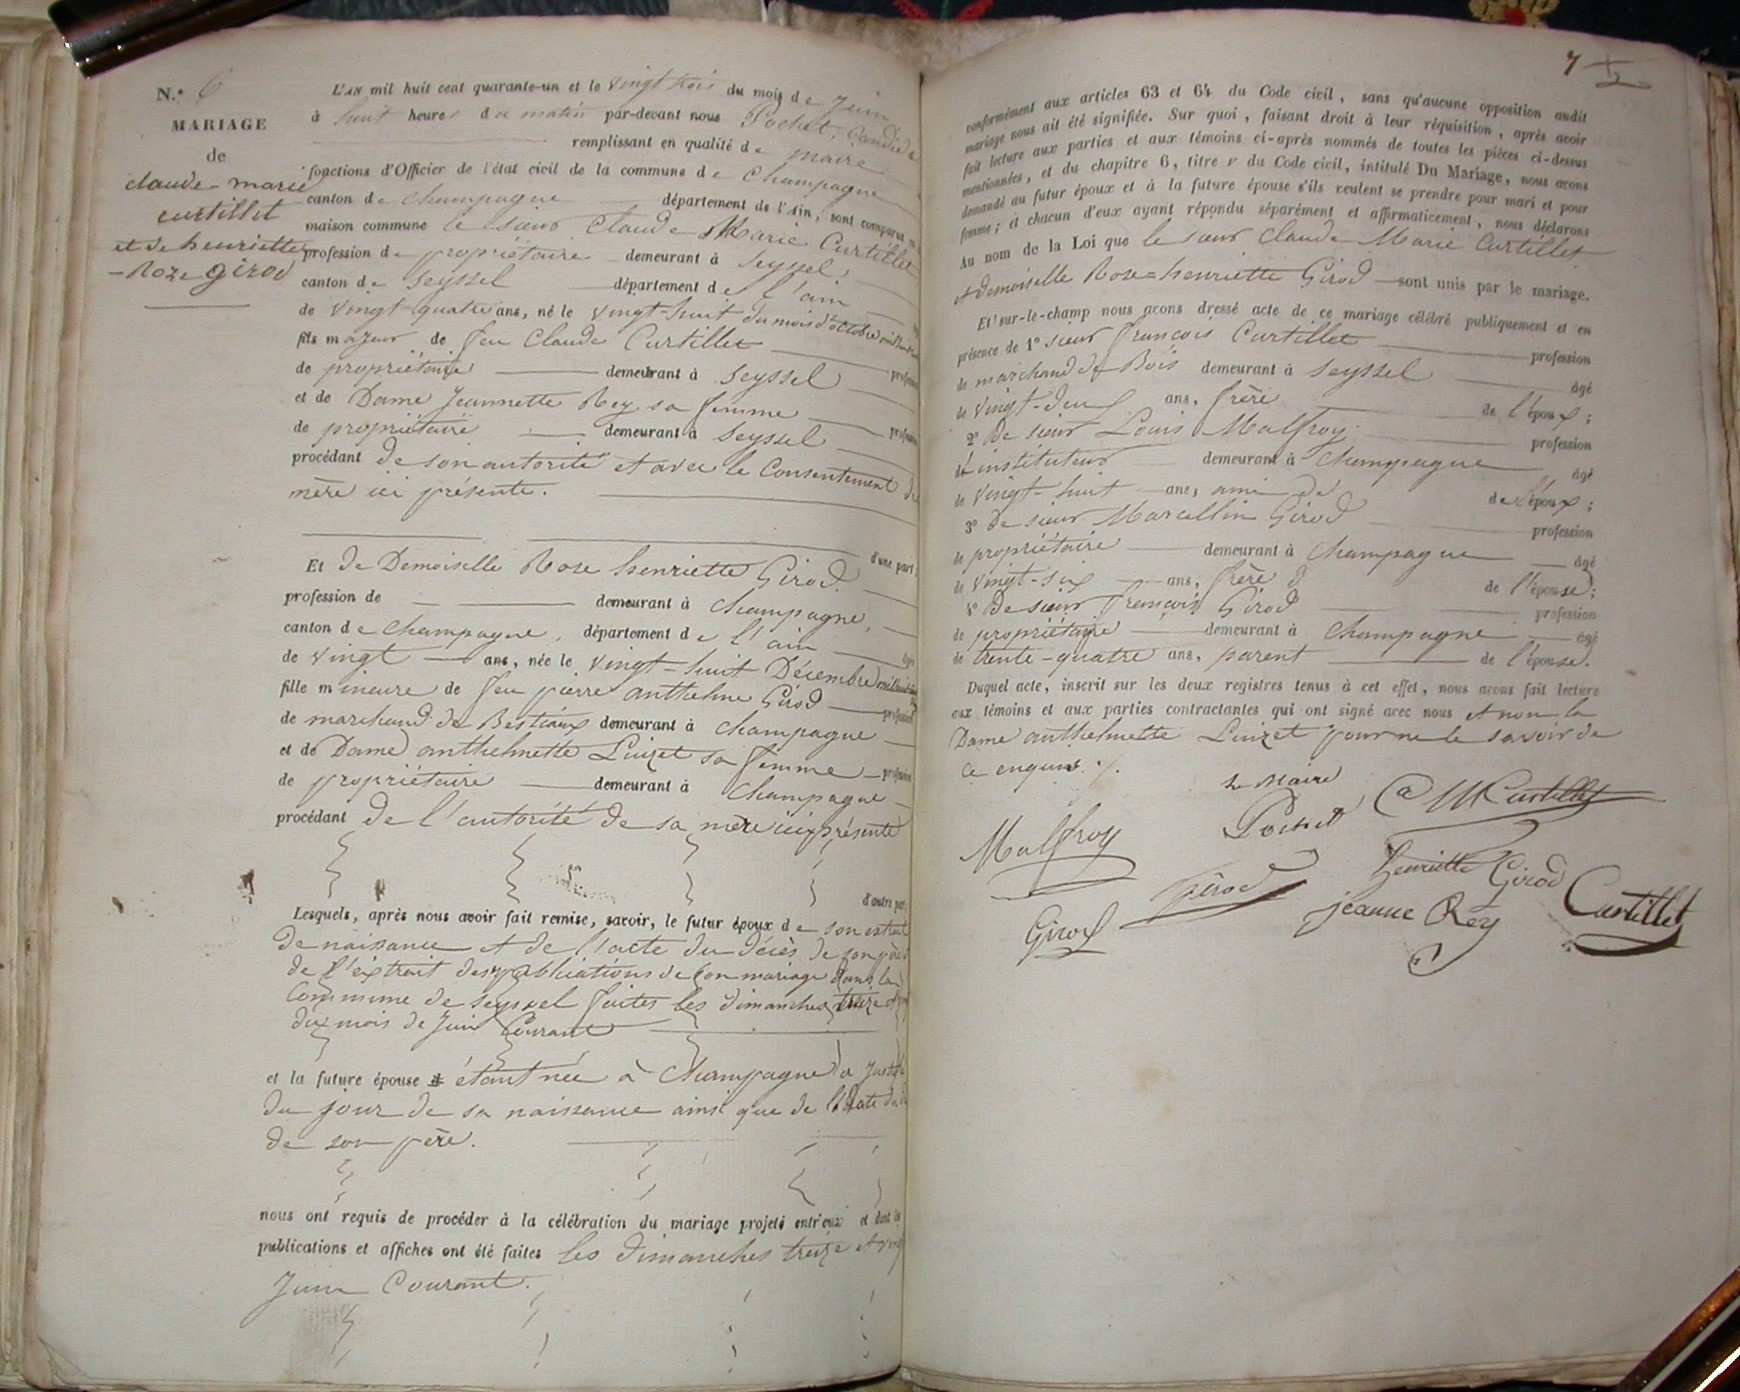 N.° 6
MARIAGE
de
claude marie
curtillet
et de henriette
Roze girod
L'AN mil huit cent quarante-un et le vingt trois du mois de juin
à huit heures du matin par-devant nous Pochet,
remplissant en qualité de maire
fonctions d'Officier de l'état civil de la commune de Champagne
canton de Champagne département de l'Ain, sont comparus
maison commune le sieur Claude Marie Curtillet
profession de propriétaire demeurant à Seyssel,
canton de Seyssel département de l'ain
de vingt quatre ans, né le vingt-huit du mois d'octobre
fils majeur de feu Claude Curtillet
de propriétaire demeurant à Seyssel
et de Dame Jeannette Rey sa femme
de propriétaire demeurant à Seyssel
procédant de son autorité et avec le Consentement de
mère ici présente.
d'une part,
Et de Demoiselle Roze henriette Girod
profession de demeurant à Champagne,
canton de Champagne, département de l'ain
de vingt ans, née le vingt-huit Décembre
fille mineure de feu pierre anthelme Girod
de marchand de Bestiaux demeurant à Champagne
et de Dame anthelmette Luizet sa femme
de propriétaire demeurant à Champagne
procédant de l'autorité de sa mère ici présente
d'autre part
Lesquels, après nous avoir fait remise, savoir, le futur époux de son extrait
de naissance et de l'acte du décès de son père
de l'extrait des publications de son mariage dans la
Commune de Seyssel faites les dimanches treize et
du mois de Juin Courant
et la future épouse étant née à Champagne a
du jour de sa naissance ainsi que de
de son père.
nous ont requis de procéder à la célébration du mariage projeté entr'eux et dont les
publications et affiches ont été faites les dimanches treize et vingt
Juin Courant.
7
conformément aux articles 63 et 64 du Code civil, sans qu'aucune opposition audit
mariage nous ait été signifiée. Sur quoi, faisant droit à leur réquisition, après avoir
fait lecture aux parties et aux témoins ci-après nommés de toutes les pièces ci-dessus
mentionnées, et du chapitre 6, titre v du Code civil, intitulé Du Mariage, nous avons
demandé au futur époux et à la future épouse s'ils veulent se prendre pour mari et pour
femme; et chacun d'eux ayant répondu séparément et affirmativement, nous déclarons
Au nom de la Loi que le sieur Claude Marie Curtillet
et demoiselle Rose-henriette Girod sont unis par le mariage.
Et sur-le-champ nous avons dressé acte de ce mariage célébré publiquement et en
présence de 1° sieur françois Curtillet profession
de marchand de Bois demeurant à Seyssel âgé
de vingt-deux ans, frère de l'époux;
2° De sieur Louis Malfroy profession
d'instituteur demeurant à Champagne âgé
de vingt-huit ans, ami de de l'époux;
3° De sieur Marcellin Girod profession
de propriétaire demeurant à Champagne âgé
de vingt-six ans, frère d de l'épouse;
4° De sieur françois Girod profession
de propriétaire demeurant à Champagne âgé
de trente-quatre ans, parent de l'épouse.
Duquel acte, inscrit sur les deux registres tenus à cet effet, nous avons fait lecture
aux témoins et aux parties contractantes qui ont signé avec nous et non la
Dame anthelmette Luizet pour ne le savoir de
ce enquise.
Le Maire
Malfroy Pochet CMCurtillet
henriette Girod
Girod Girod jeanne Rey Curtillet